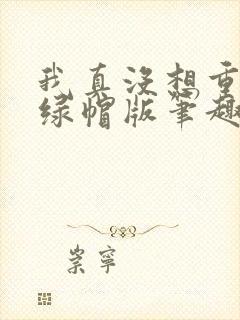 我真没想重
绿帽版笔趣
崇寧